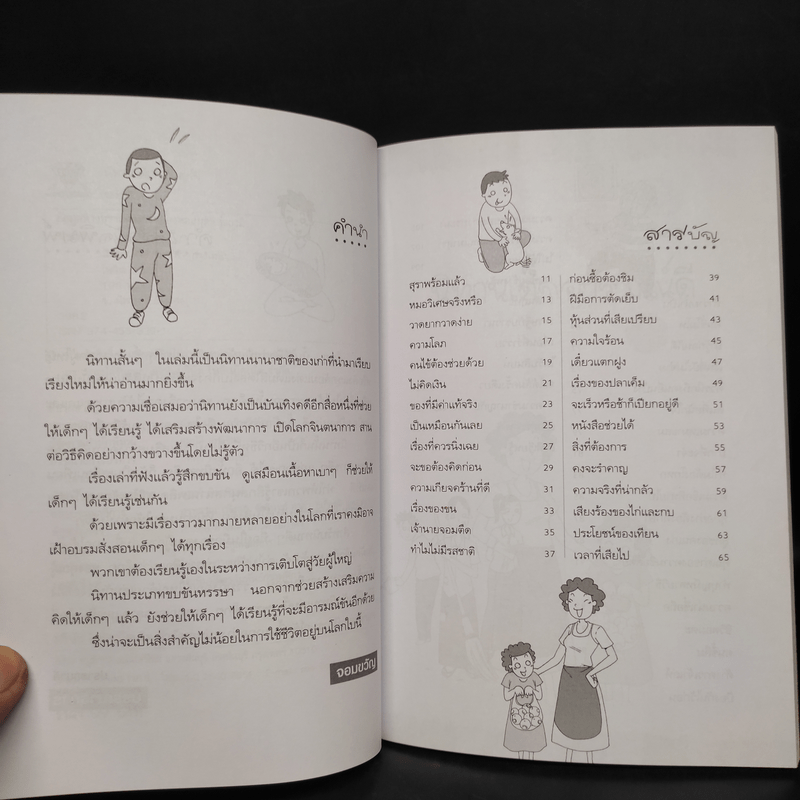 คำนำ
นิทานสั้นๆ ในเล่มนี้เป็นนิทานนานาชาติของเก่าที่นำมาเรียบ
เรียงใหม่ให้น่าอ่านมากยิ่งขึ้น
ด้วยความเชื่อเสมอว่านิทานยังเป็นบันเทิงคดีอีกสื่อหนึ่งที่ช่วย
ให้เด็กๆ ได้เรียนรู้ ได้เสริมสร้างพัฒนาการ เปิดโลกจินตนาการ สาน
ต่อวิธีคิดอย่างกว้างขวางขึ้นโดยไม่รู้ตัว
เรื่องเล่าที่ฟังแล้วรู้สึกขบขัน ดูเสมือนเนื้อหาเบาๆ ก็ช่วยให้
เด็กๆ ได้เรียนรู้เช่นกัน
ด้วยเพราะมีเรื่องราวมากมายหลายอย่างในโลกที่เราคงมิอาจ
เฝ้าอบรมสั่งสอนเด็กๆ ได้ทุกเรื่อง
พวกเขาต้องเรียนรู้เองในระหว่างการเติบโตสู่วัยผู้ใหญ่
นิทานประเภทขบขันหรรษา นอกจากช่วยสร้างเสริมความ
คิดให้เด็กๆ แล้ว ยังช่วยให้เด็กๆ ได้เรียนรู้ที่จะมีอารมณ์ขันอีกด้วย
ซึ่งน่าจะเป็นสิ่งสำคัญไม่น้อยในการใช้ชีวิตอยู่บนโลกใบนี้
จอมขวัญ
สารบัญ
สุราพร้อมแล้ว 11
หมอวิเศษจริงหรือ 13
วาดยากวาดง่าย 15
ความโลภ 17
คนไข้ต้องช่วยด้วย 19
ไม่คิดเงิน 21
ของที่มีค่าแท้จริง 23
เป็นเหมือนกันเลย 25
เรื่องที่ควรนิ่งเฉย 27
จะขอต้องคิดก่อน 29
ความเกียจคร้านที่ดี 31
เรื่องของขน 33
เจ้านายจอมตืด 35
ทำไมไม่มีรสชาติ 37
ก่อนซื้อต้องชิม 39
ฝีมือการตัดเย็บ 41
หุ้นส่วนที่เสียเปรียบ 43
ความใจร้อน 45
เดี๋ยวแตกฝูง 47
เรื่องของปลาเค็ม 49
จะเร็วหรือช้าก็เปียกอยู่ดี 51
หนังสือช่วยได้ 53
สิ่งที่ต้องการ 55
คงจะรำคาญ 57
ความจริงที่น่ากลัว 59
เสียงร้องของไก่และกบ 61
ประโยชน์ของเทียน 63
เวลาที่เสียไป 65